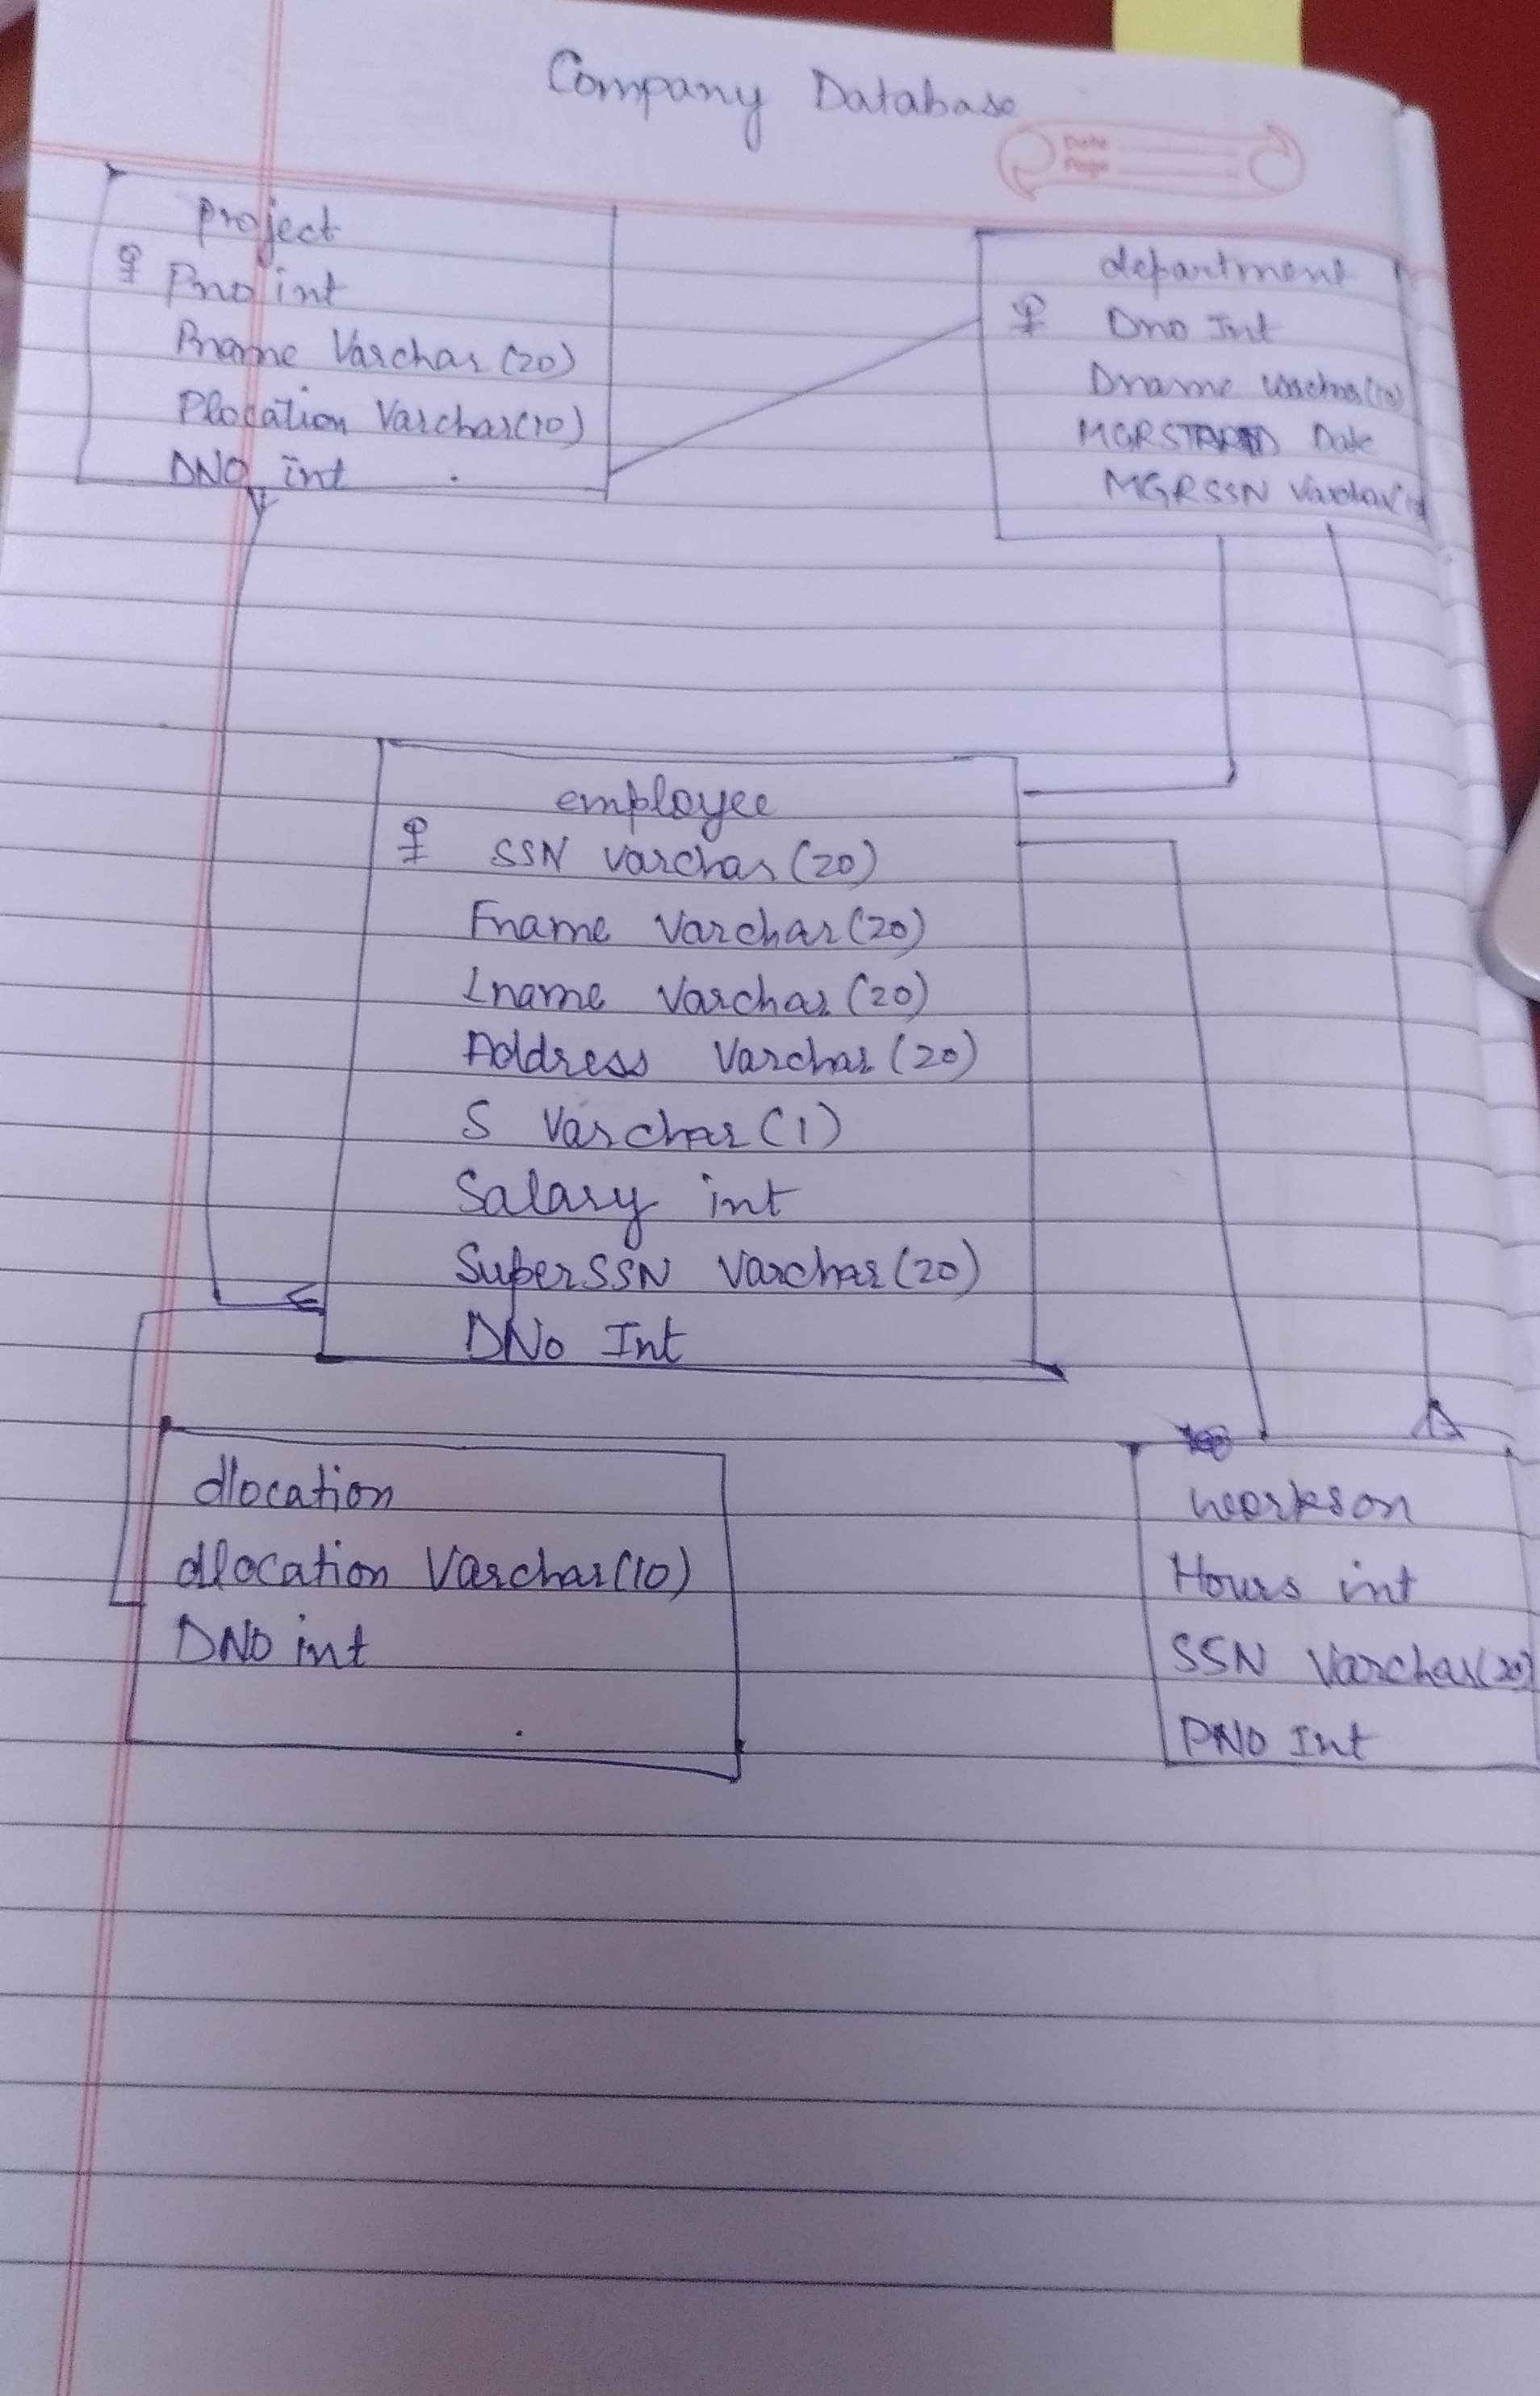 Company Database
Date
Page
project
Pno int
Pname Varchar (20)
Plocation Varchar(10)
DNO int
department
Dno Int
Dname
Date
MGRSSN
employee
SSN varchar (20)
Fname Varchar (20)
Lname Varchar (20)
Address Varchar (20)
S Varchar (1)
Salary int
SuperSSN Varchar (20)
DNo Int
dlocation
dlocation Varchar (10)
DNO int
workson
Hours int
SSN Varchar(20)
PNO Int